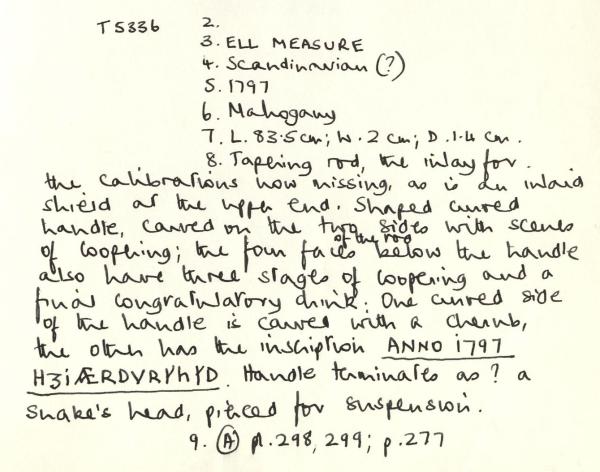 T5336 2.
3. ELL MEASURE
4. Scandinavian (?)
5. 1797
6. Mahogany
7. L. 83.5 cm; W. 2 cm; D. 1.4 cm.
8. Tapering rod, the inlay for
the calibrations now missing, as is an inlaid
shield at the upper end. Shaped curved
handle, carved on the two sides with scenes
of coopering; the four faces of the rod below the handle
also have three stages of coopering and a
final congratulatory drink. One curved side
of the handle is carved with a cherub,
the other has the inscription ANNO i797
H3iÆRDVRYhYD. Handle terminates as ? a
snake's head, pierced for suspension.
9. (A) pl. 298, 299; p. 277